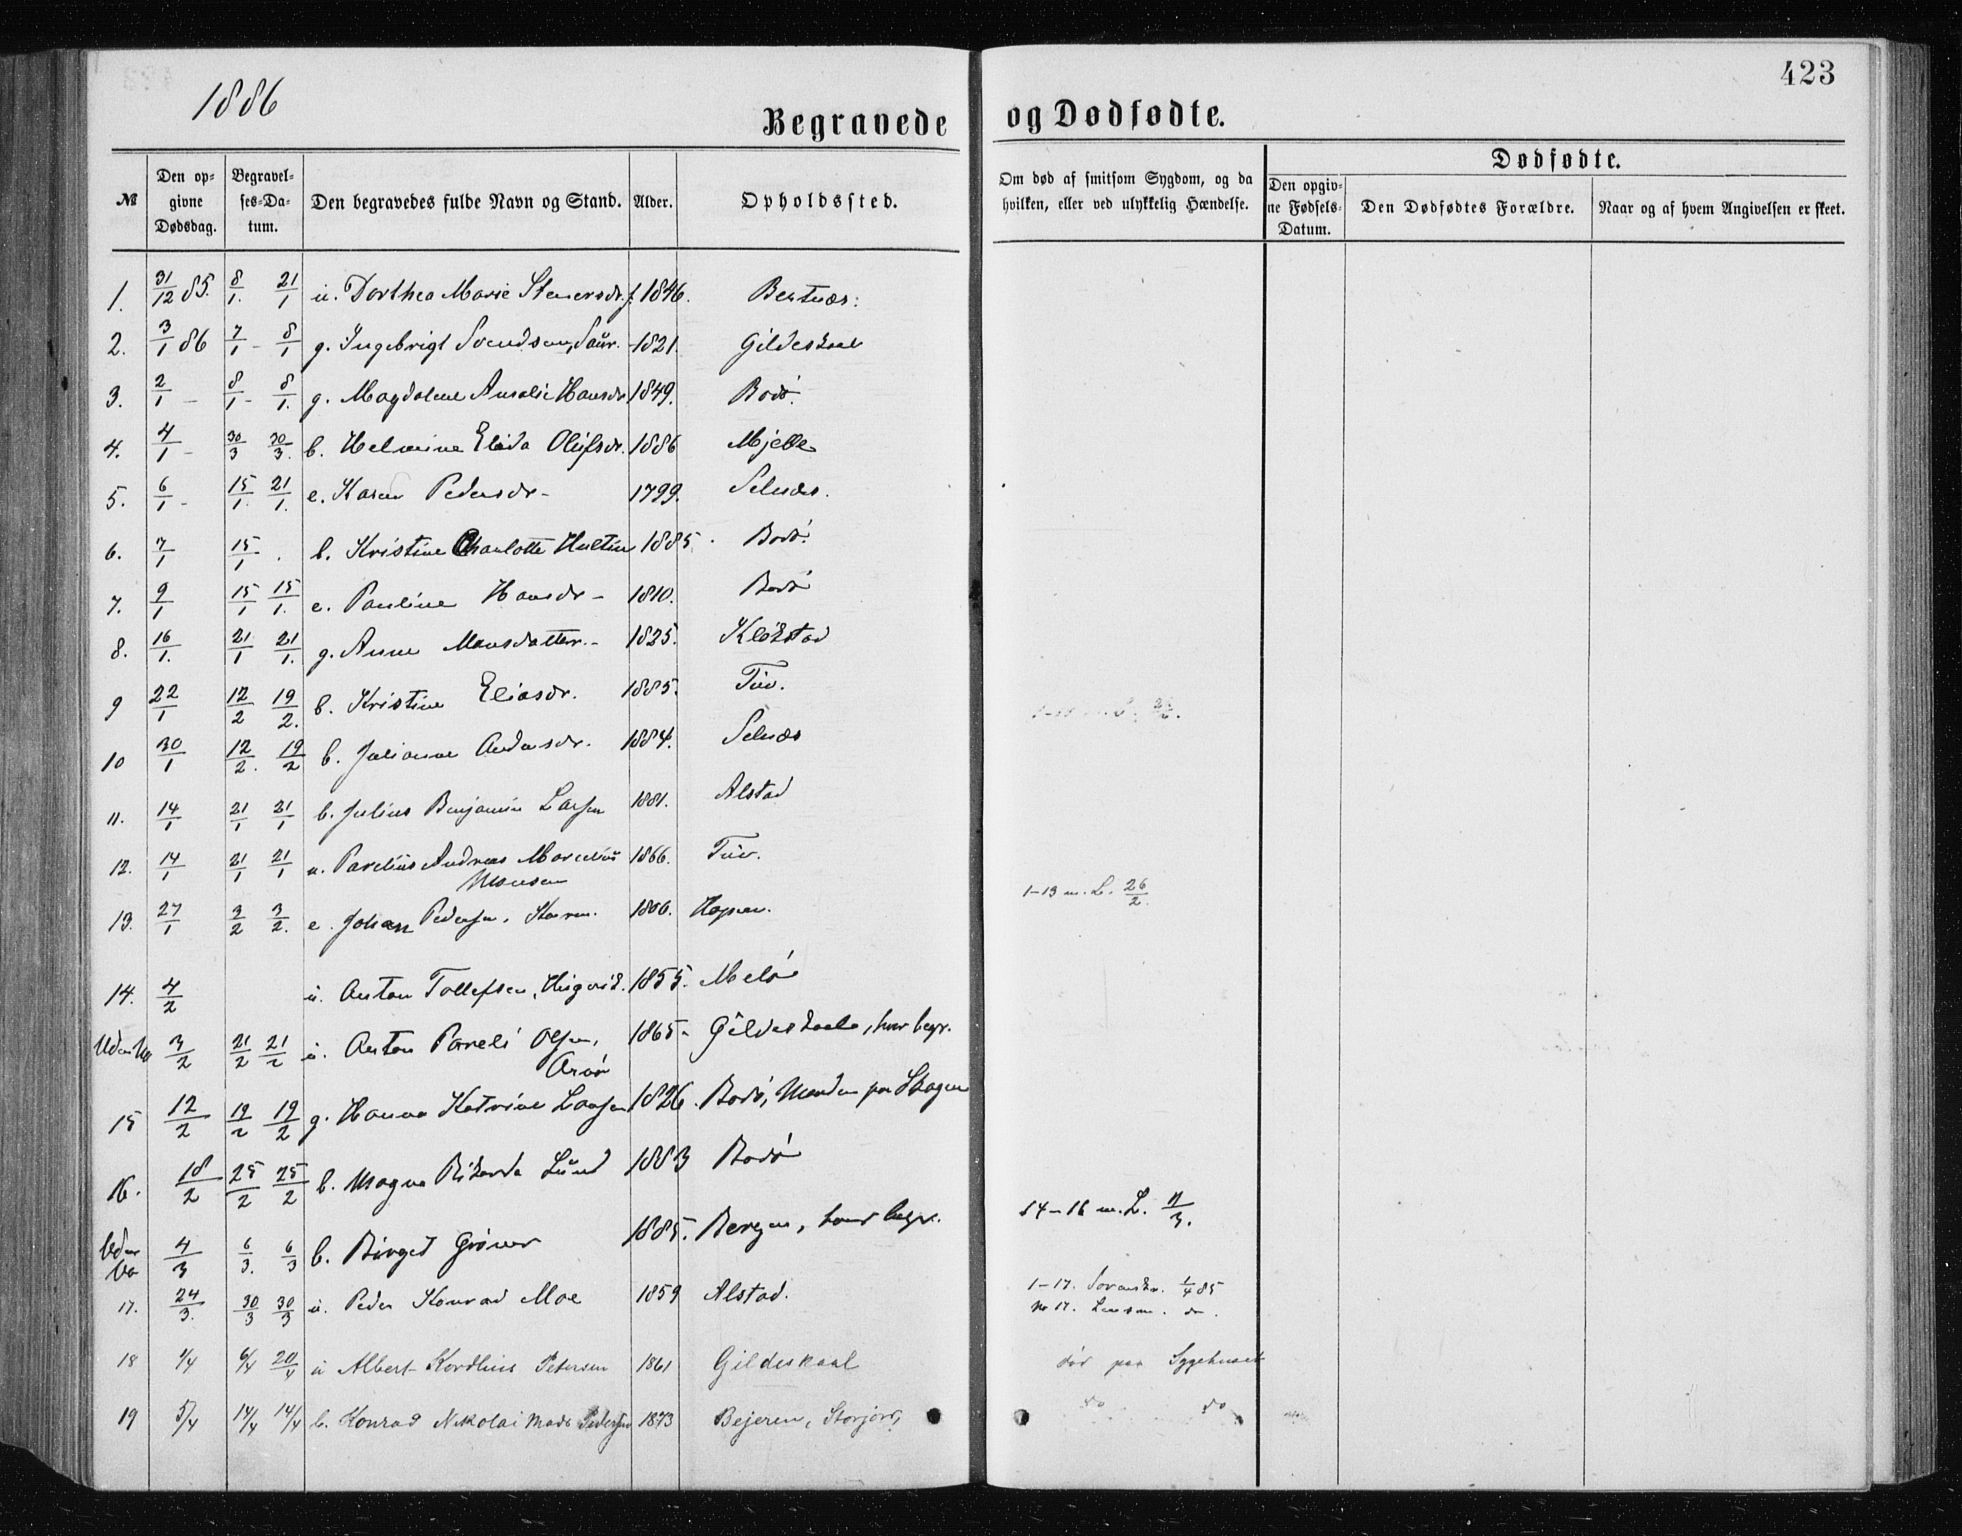 1886
423
Begravede og Dødfødte.
№ Den opgivne Dødsdag. Begravelses-Datum. Den begravedes fulde Navn og Stand. Alder. Opholdssted. Om død af smitsom Sygdom, og da hvilken, eller ved ulykkelig Hændelse.
Dødfødte.
Den opgivne Fødsels-Datum. Den Dødfødtes Forældre. Naar og af hvem Angivelsen er skeet.
1. 31/12 85. 8/1. 21/1 u. Dorthea Marie Steensdr. f. 1846. Bertnæs.
2. 3/1 86 7/1 - 8/1 g. Ingebrigt Svendsen, Saur. - 1821. Gildeskaal
3. 2/1 - 8/1 - 8/1. g. Magdalene Amalie Hansdr. 1849. Bodø.
4. 4/1 - 30/3 30/3. b. Helmine Elida Olufsdr. 1886 Mjelle
5. 6/1 - 15/1. 21/1. e. Karen Pedersdr - 1799. Selnæs.
6. 7/1 15/1 . b. Kristine Charlotte Hultin 1885. Bodø.
7. 9/1 15/1 15/1. e. Pauline Hansdr - 1810. Bodø
8. 16/1. 21/1 21/1. g. Anne Monsdatter. - 1825. Kløkstad
9 22/1 12/2 19/2. b. Kristine Eliasdr. 1885. Tuv.
10 30/1 12/2. 19/2 b. Julianne Andersdr. 1884. Selnæs
11. 14/1 21/1 21/1 b. Julius Benjamin Larsen 1881. Alstad
12. 14/1 21/1 21/1 u. Parelius Andreas Marcelius 1866. Tuv.
Monsen
1-13 m. L. 26/2.
13. 27/1 3/2 3/2. e. Johan Pedersen, 1806. Hopen.
14. 4/2 u. Anton Tollefsen, 1855. Melø
Uden No 3/2 21/2 21/2 u. Anton Pareli Olsen, 1865 - Gildeskaal, hvor begr.
Arnø
15 12/2 19/2 19/2 g. Hanna Katrine Larsen 1826. Bodø, Manden paa Skagen
16. 18/2 25/2 25/2 b. Magna Rikarda Lund 1883 Bodø
14-16 m. L. 11/3.
Uden No 4/3 6/3. 6/3 b. Birget Grøner 1885. Bergen, hvor begr.
1-17. Sorenskr. 1/4 85
17. 24/3. 30/3 30/3 u. Peder Konrad Moe 1859 Alstad. No 17. Lensm. do.
18 1/4 6/4 20/4 u Albert Kordlius Petersen 1861 Gildeskaal død paa Sygehuset
19 5/4 14/4 14/4 b. Konrad Nikolai Mads Pedersen 1873 Bejeren, Storjord, do do